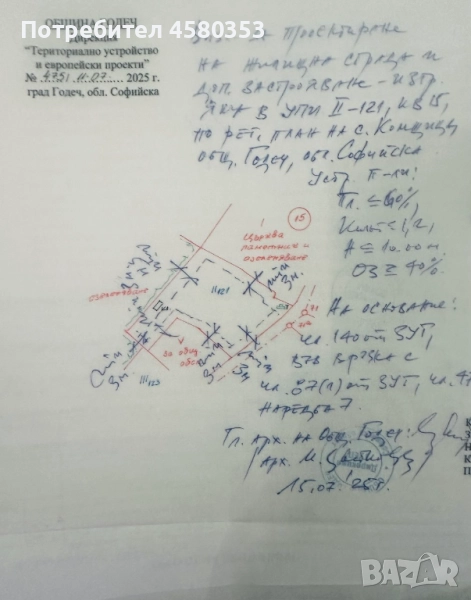 Потребител 4580353
ОБЩИНА ГОДЕЧ
Дирекция
"Териториално устройство
и европейски проекти"
№ 4751/11.07. 2025 г.
град Годеч, обл. Софийска
за проектиране
на жилищна сграда и
доп. застрояване - изгр.
в УПИ II-121, кв. 15,
по рег. план на с. Комщица
общ. Годеч, обл. Софийска
Устр. п-ли:
Пл. ≤ 60%,
Кинт ≤ 1,2,
H ≤ 10.00 м
Оз ≥ 40%.
15
църква
паметник и
озеленяване
озеленяване
II 121
за общ.
обсл.
III 123
На основание:
чл. 140 от ЗУТ,
във връзка с
чл. 87(1) от ЗУТ, чл.
Наредба 7.
Гл. арх. на Общ. Годеч:
арх. М.
15.07.25г.
BAZAR